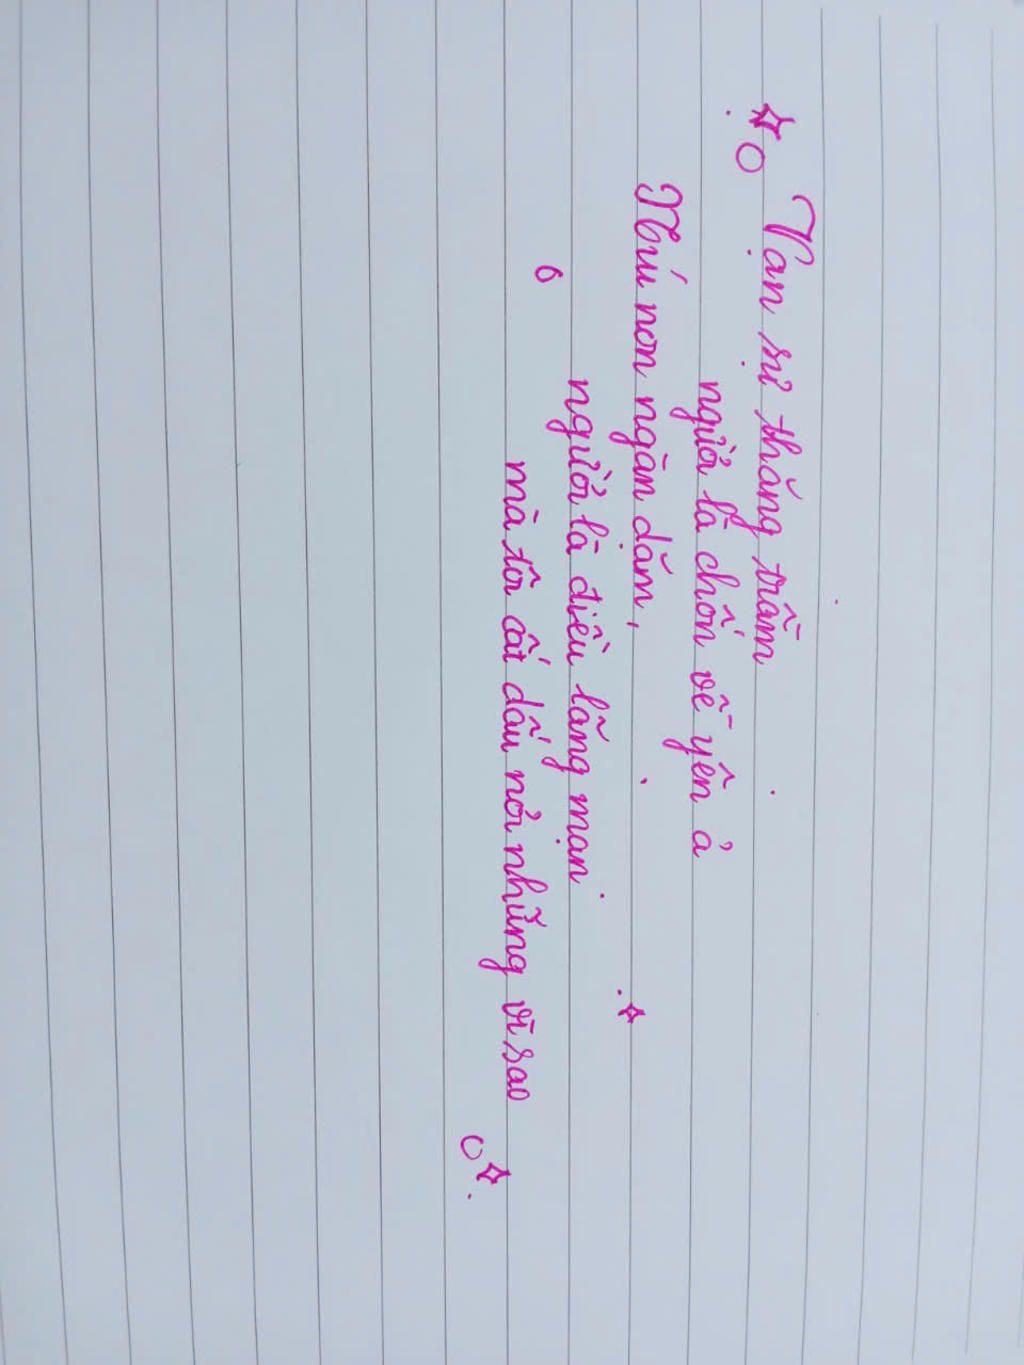 Vạn sự thăng trầm
người là chốn về yên ả
Núi non ngàn dặm,
người là điều lãng mạn
mà tôi cất dấu nơi những vì sao